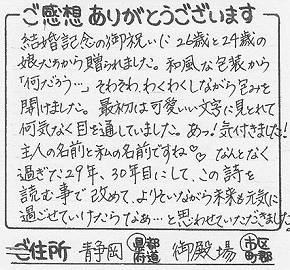 ご感想 ありがとうございます
結婚記念の御祝いに 26歳と24歳の
娘たちから贈られました。和風な包装から
「何だろう…」そわそわ、わくわくしながら包みを
開けました。最初は可愛いい文字に見とれて
何気なく目を通していました。あっ!気付きました!
主人の名前と私の名前ですね♡♡ なんとなく
過ぎた29年、30年目にして、この詩を
読む事で改めて、よりそいながら未来も元気に
過ごせていけたらなぁ…と思わせていただきました。
ご住所 静岡 都道府県 御殿場 市区町郡